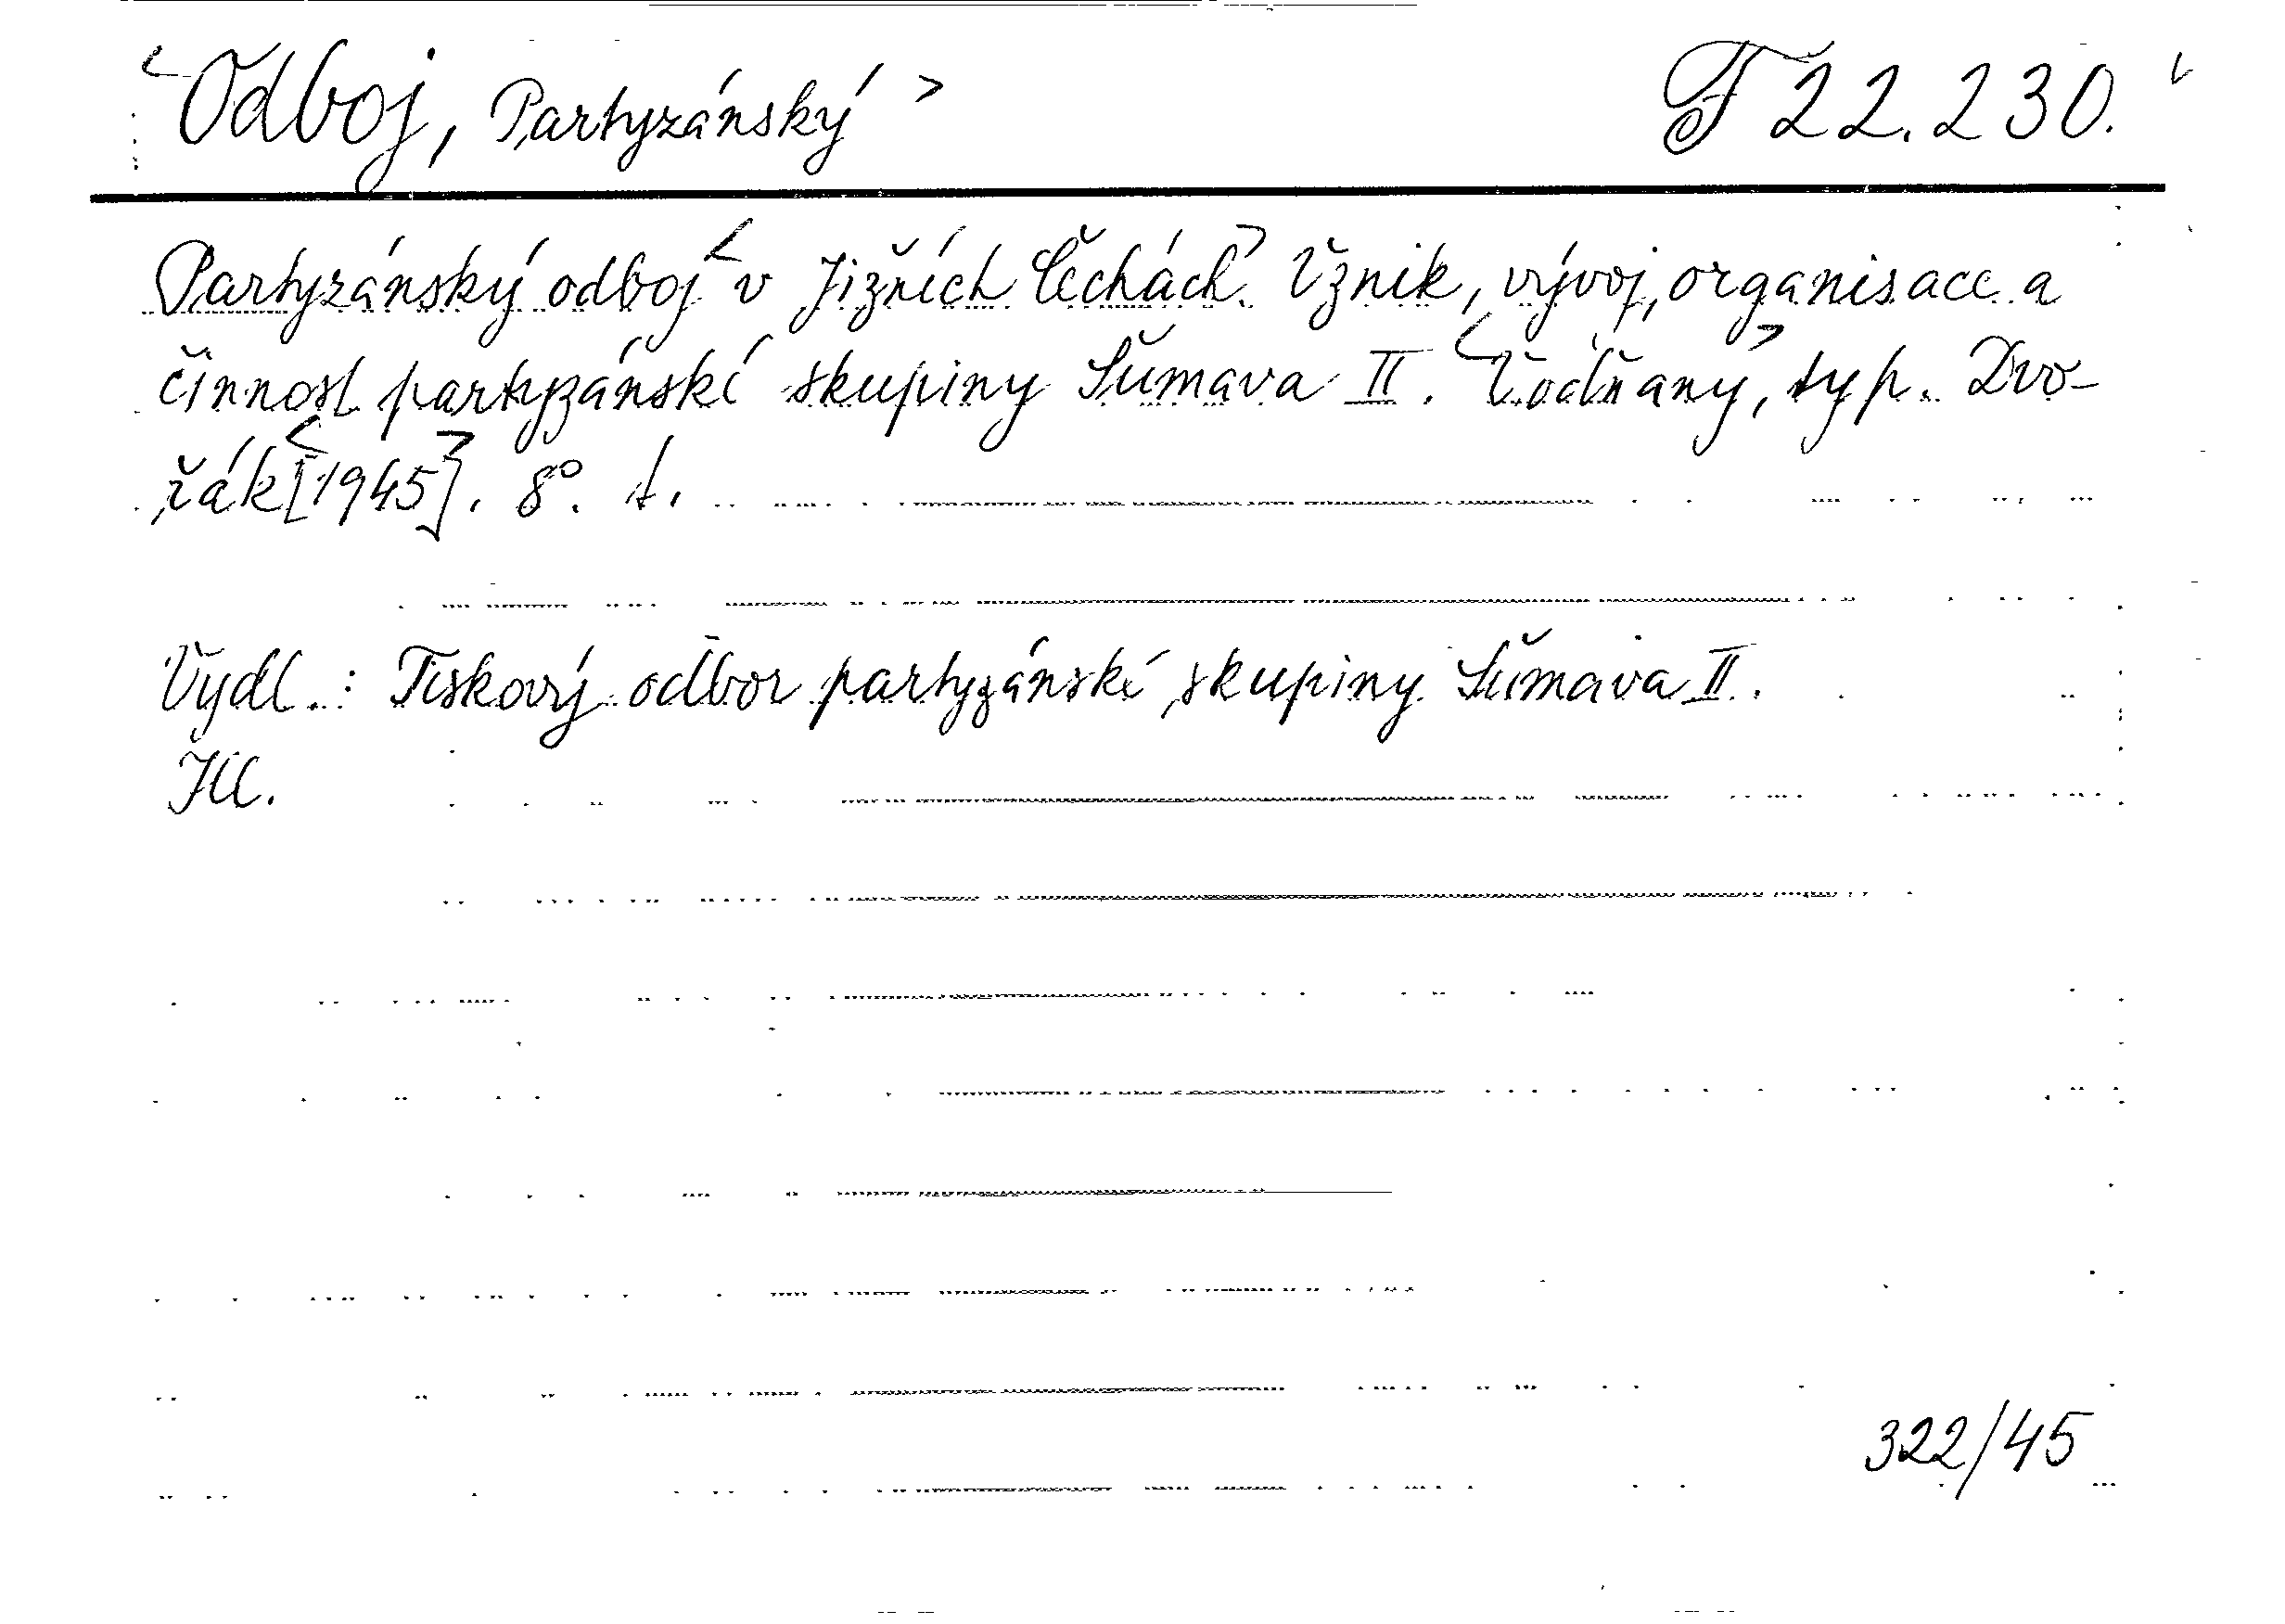 <Odboj, Partyzánský> F 22.230.
Partyzánský odboj <v Jižních Čechách.> Vznik, vývoj, organisace a
činnost partyzánské skupiny Šumava II. <Vodňany>, typ. Dvo-
řák <[1945]>. 8°. s.
Vydl.: Tiskový odbor partyzánské skupiny Šumava II.
Ill.
322/45